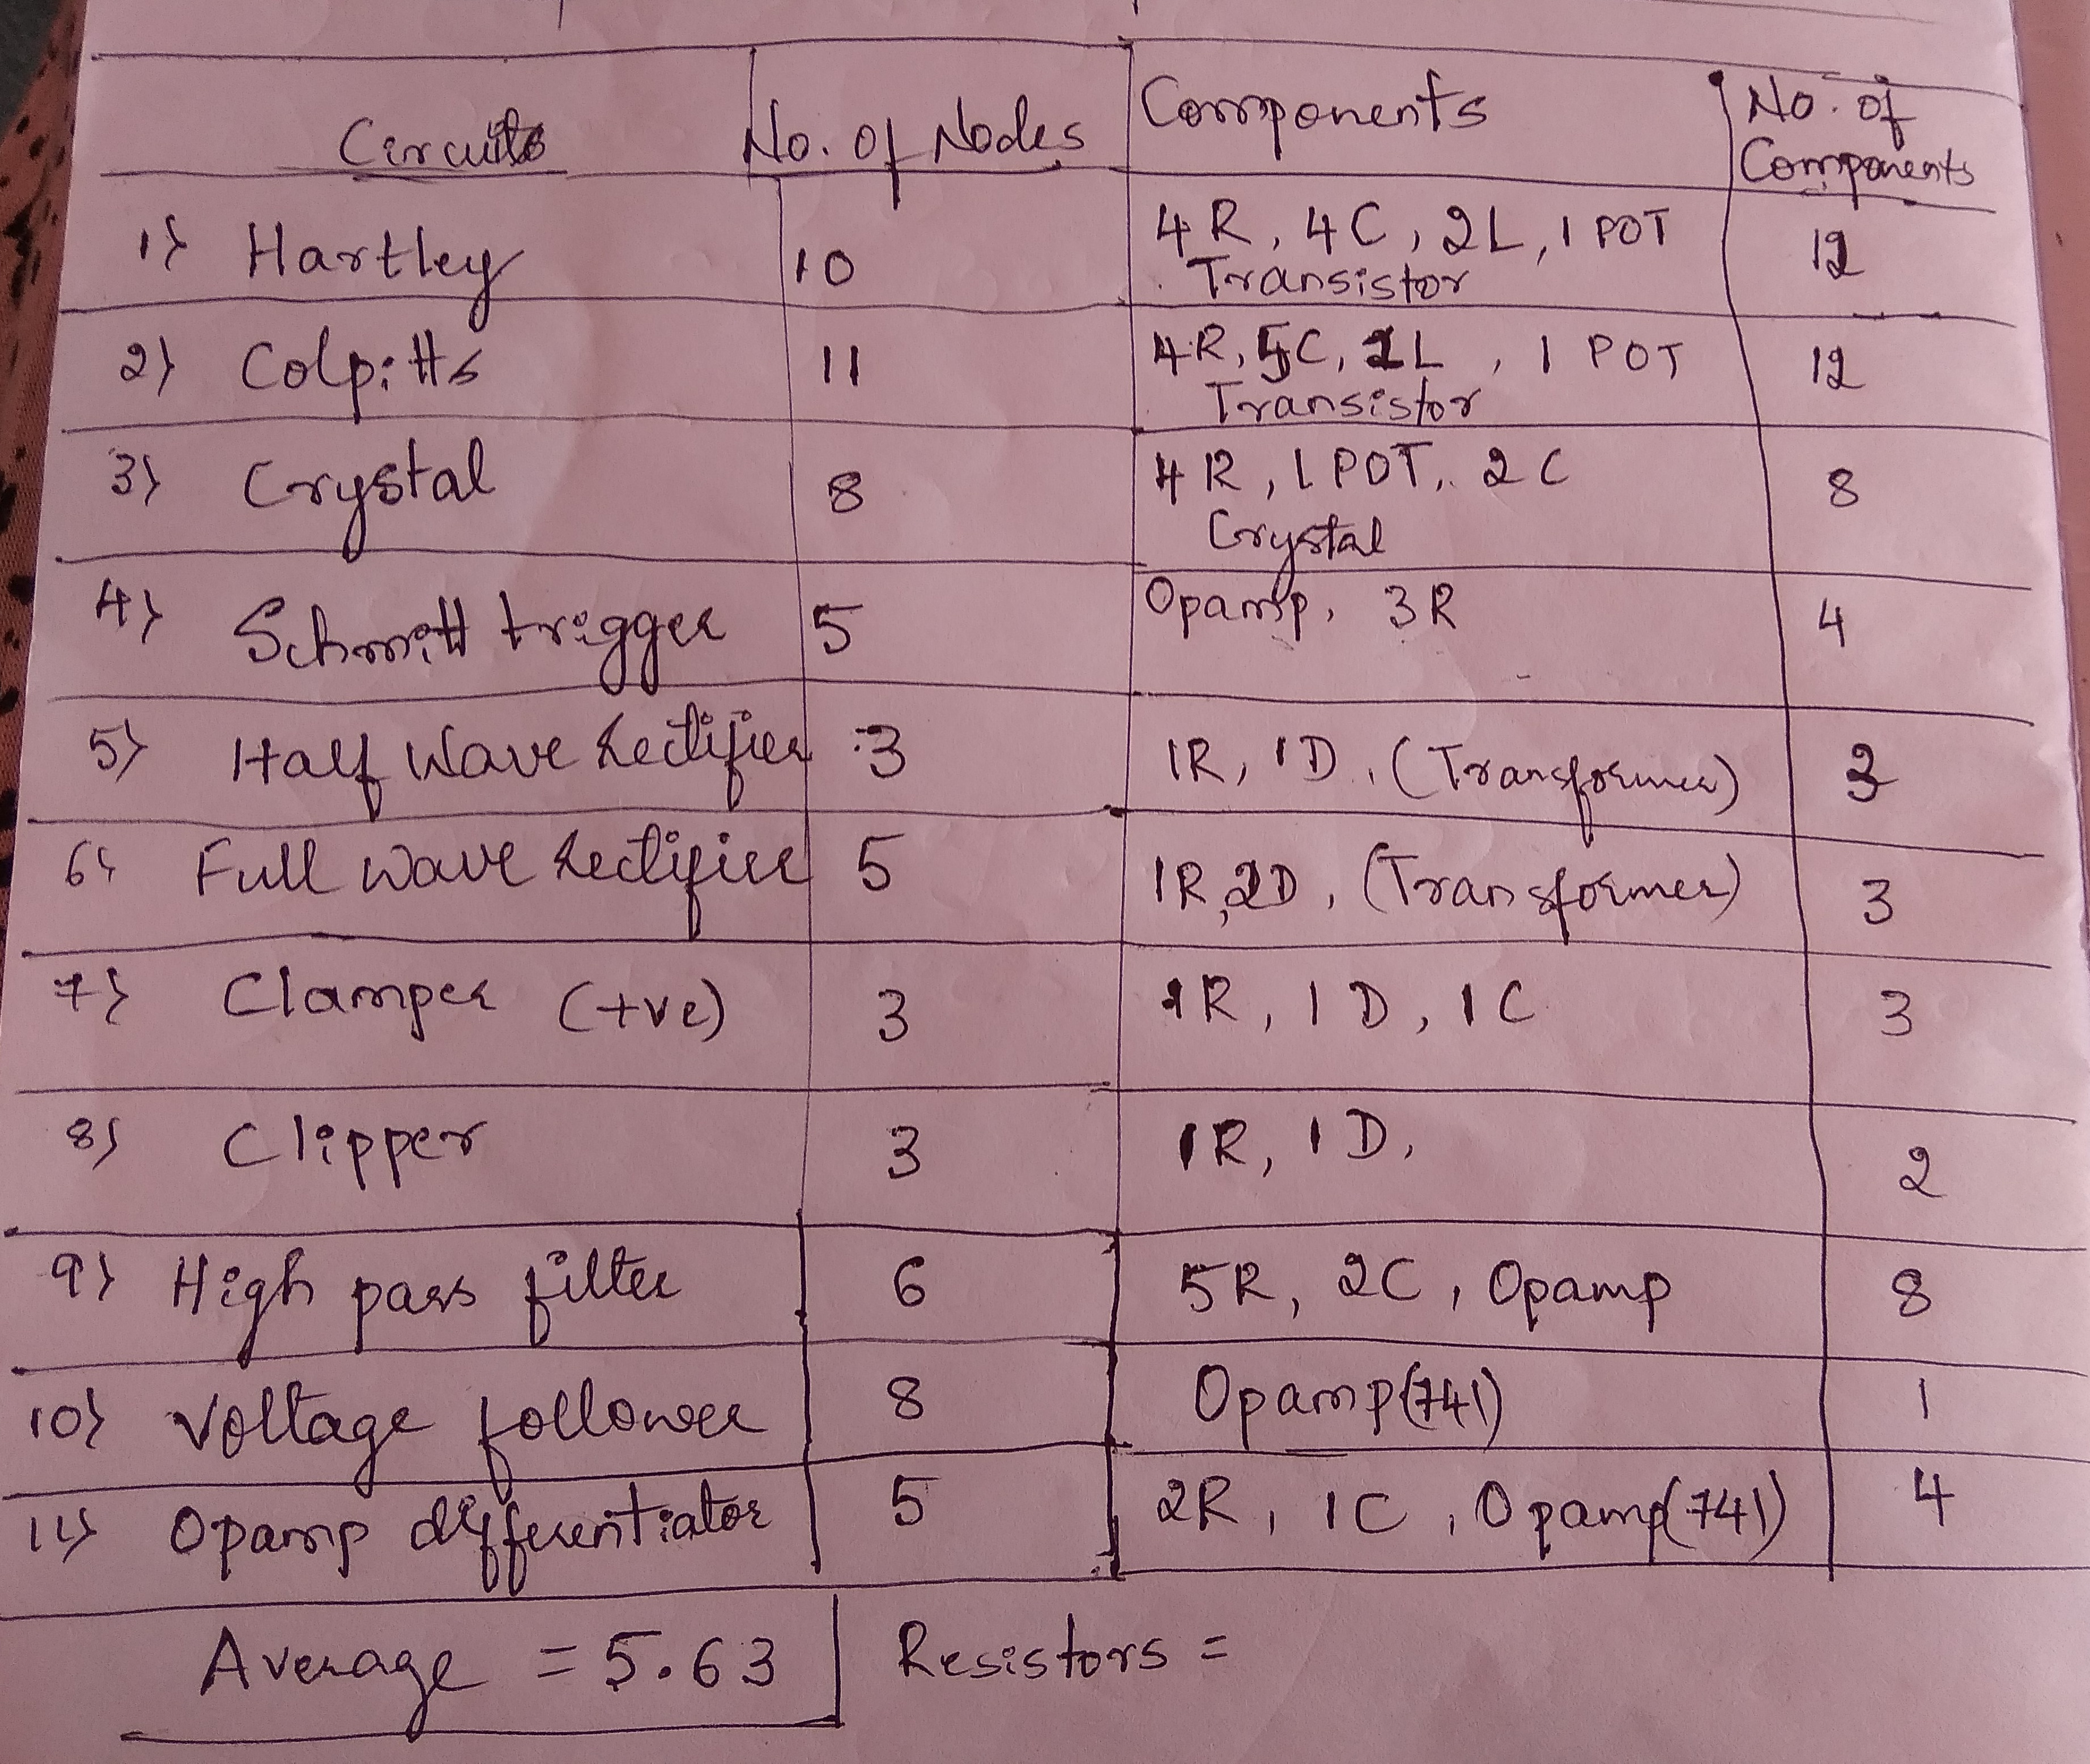 Circuits No. of Nodes Components No. of Components
1) Hartley 10 4R, 4C, 2L, 1 POT 12
Transistor
2) Colpitts 11 4R, 5C, 1L, 1 POT 12
Transistor
3) Crystal 8 4R, 1 POT, 2C 8
Crystal
4) Schmitt trigger 5 Opamp, 3R 4
5) Half Wave Rectifier 3 1R, 1D, (Transformer)
6) Full wave Rectifier 5 1R, 2D, (Transformer) 3
7) Clamper (+ve) 3 1R, 1D, 1C 3
8) Clipper 3 1R, 1D, 2
9) High pass filter 6 5R, 2C, Opamp 8
10) Voltage follower 8 Opamp(741) 1
11) Opamp differentiator 5 2R, 1C, Opamp(741) 4
Average = 5.63 Resistors =